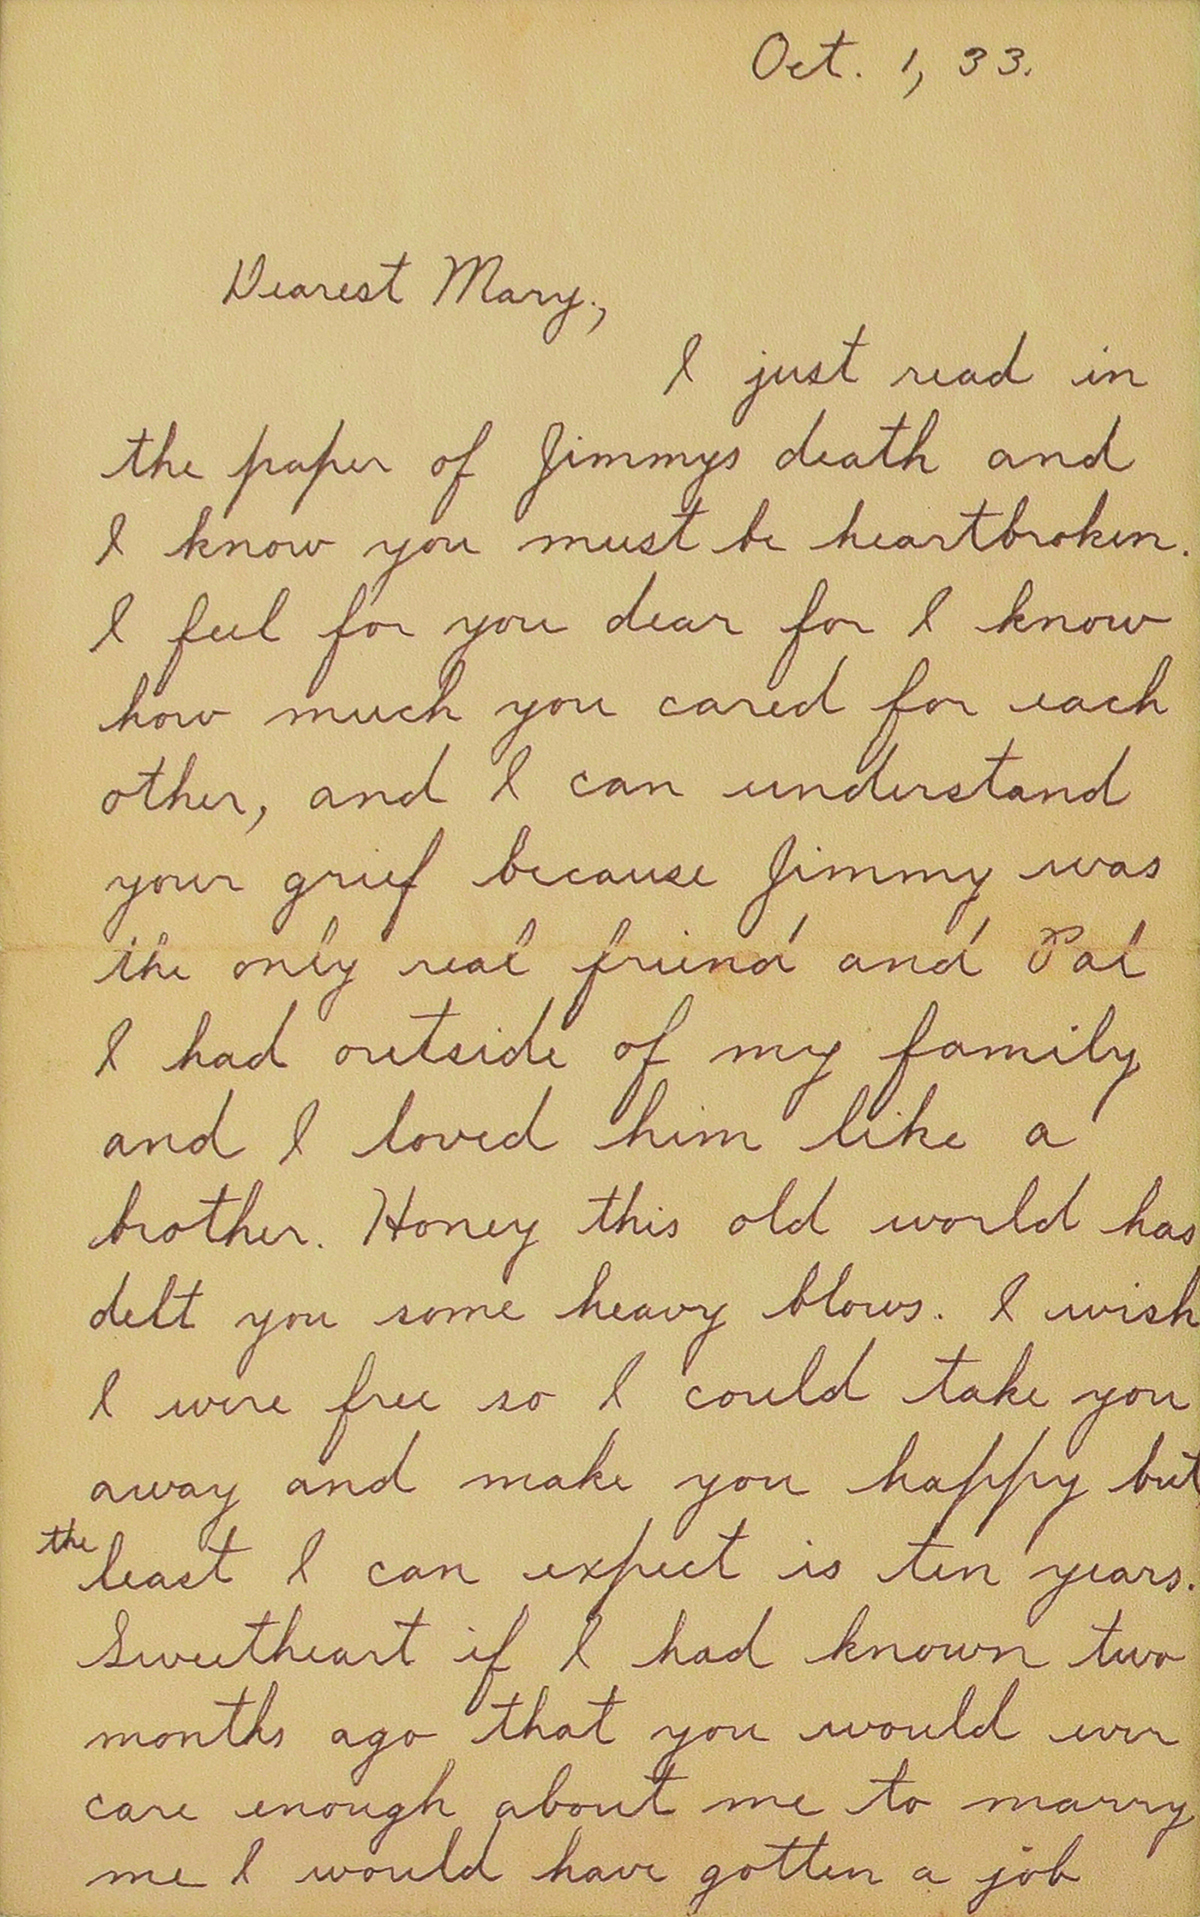 Oct. 1, 33.
Dearest Mary.,
I just read in
the paper of Jimmys death and
I know you must be heartbroken.
I feel for you dear for I know
how much you cared for each
other, and I can understand
your grief because Jimmy was
the only real friend and Pal
I had outside of my family
and I loved him like a
brother. Honey this old world has
delt you some heavy blows. I wish
I were free so I could take you
away and make you happy but
the least I can expect is ten years.
Sweetheart if I had known two
months ago that you would ever
care enough about me to marry
me I would have gotten a job